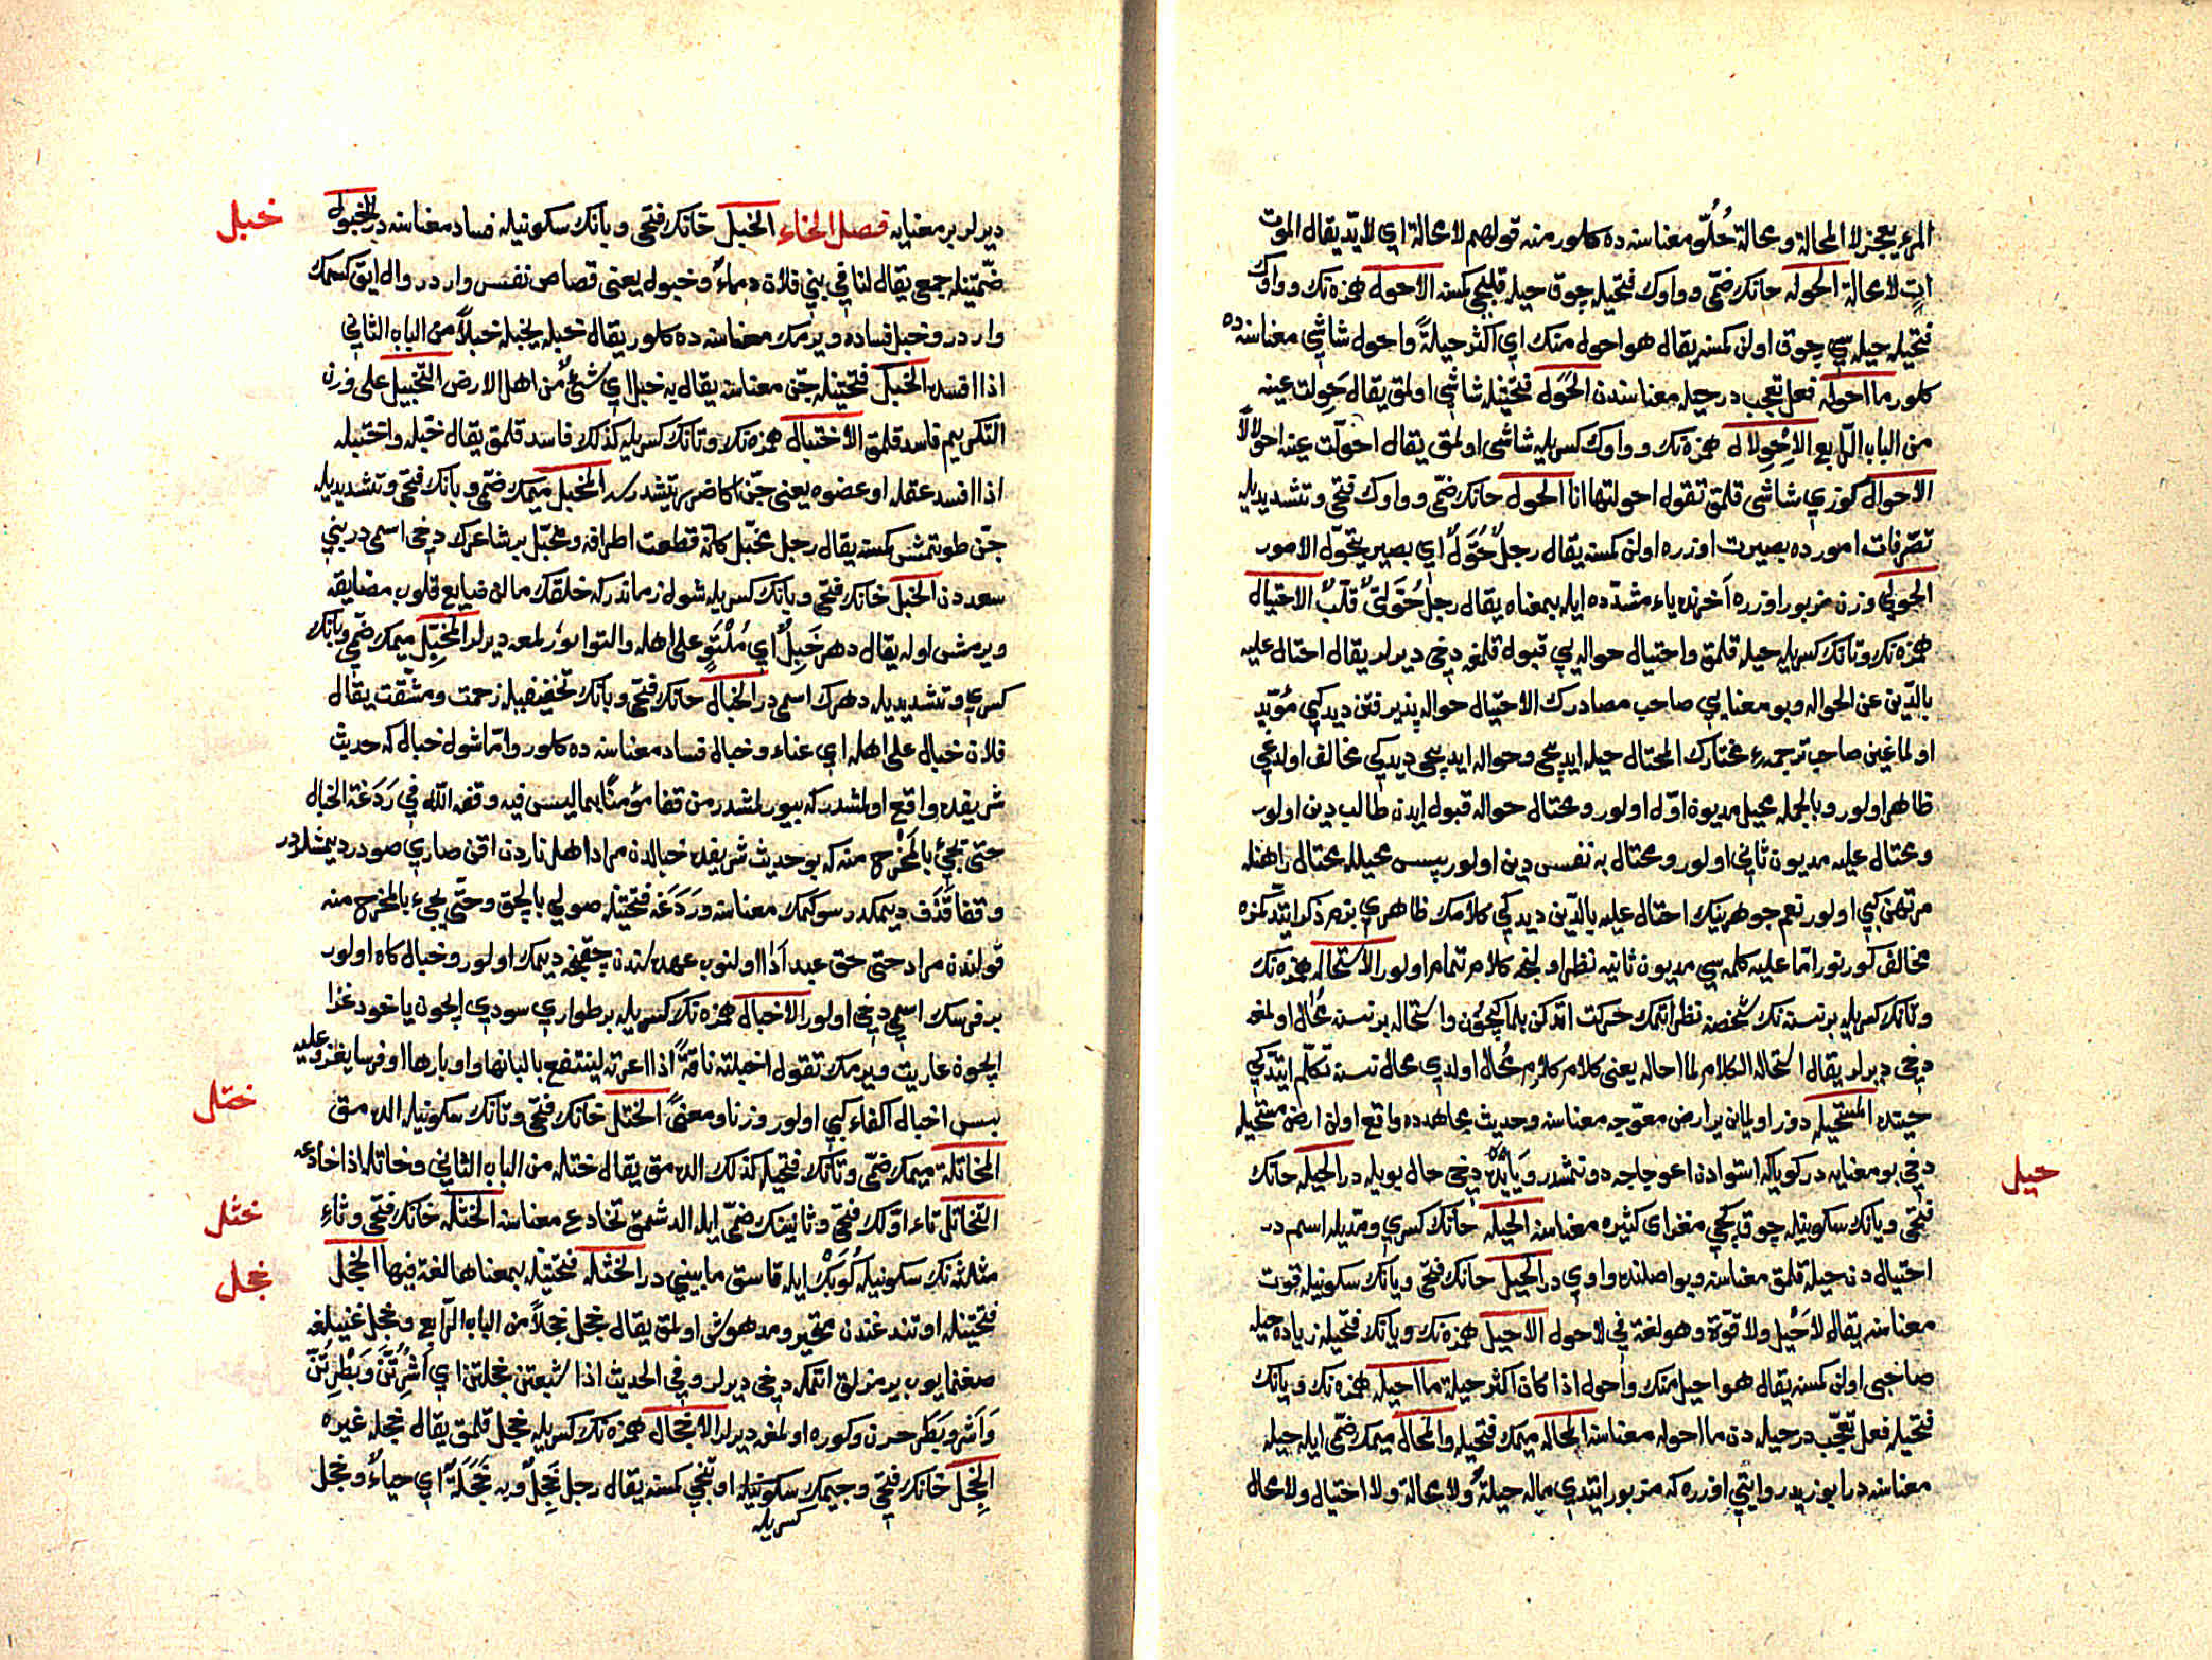 المرء يعجز لا المحالة ومحالة خلو معناسنه ده كلور منه قولهم لا محالة اي لا بد يقال الموت
ات لا محالة الحوله حانك ضمى وواوك فتحيله چوق حيله قلیجی كسنه الاحول همزه نك وواوك
فتحيله حيله سي چوق اولن كسنه يقال هو احول منك اي اكثر حيلةً واحول شاشي معناسنه ده
كلور ما احوله فعل تعجب در حيله معناسندن الحَوَل فتحتيله شاشي اولمق يقال حَوِلت عينه
من الباب الرابع الاِحْوِلال همزه نك وواوك كسريله شاشى اولمق يقال احولّت عينه احولالاً
الاحوال كوزي شاشى قلمق تقول احولتها انا الحول حانك ضمى وواوك فتحى وتشديديله
تصرفات امورده بصيرت اوزره اولن كسنه يقال رجلٌ حُوَّلٌ اي بصير بتحول الامور
الحولي وزن مزبور اوزره آخرنده ياء مشدده ايله بمعناه يقال رجل حُوَّليٌّ قُلَّبٌ الاحتيال
همزه نك وتانك كسريله حيله قلمق واحتيال حواله يي قبول قلمغه دخى ديرلر يقال احتال عليه
بالدين من الحواله وبو معنايي صاحب مصادرك الاحتيال حواله پذيرفتن ديدكي مؤيد
اولماغين صاحب ترجمه مختارك المحتال حيله ايديجى وحواله ايديجى ديدكي مخالف اولدغي
ظاهر اولور وبالجمله محيل مديون اول اولور ومحتال حواله قبول ايدن طالب دين اولور
ومحتال عليه مديون ثاني اولور ومحتال به نفس دين اولور پس محيلله محتال راهنله
مرتهن كبي اولور نعم جوهرينك احتال عليه بالدين ديدكي كلامك ظاهري بزم ذكر ايتدكمزه
مخالف كورنور اما عليه كلمه سي مديون ثانيه نظر اولنجه كلام تمام اولور الاستحاله همزه نك
وتانك كسريله بر نسنه نك شخصنه نظر ايتمك حركت ايدركن بلمك ايچون واستحاله بر نسنه محال اولمغه
دخى ديرلر يقال استحاله الكلام لما احاله يعنى كلام كلام محال اولدي محال نسنه تكلم ايتدكي
حيتده المستحيله دوز اولمين ير ارض معوجه معناسنه وحديث مجاهدده واقع اولن ارض مستحيله
دخى بو معنايه در كوياكه استوادن اعوجاجه دونمشدر دخى حال بويله در الحيله حانك
فتحى ويانك سكونيله چوق كچى معزاى كثيره معناسنه الحيله حانك كسري ومديله اسم در
احتيال دن حيله قلمق معناسنه وبو اصلنده واوي در الحيل حانك فتحى ويانك سكونيله قوت
معناسنه يقال لا حَيْل ولا قوة وهو لغة في لا حول الاحيل همزه نك ويانك فتحيله زياده حيله
صاحبى اولن كسنه يقال هو احيل منك واحول اذا كان اكثر حيلة ما احيله همزه نك ويانك
فتحيله فعل تعجب در حيله دن ما احوله معناسنه المحاله ميمك فتحيله والمحال ميمك ضمى ايله حيله
معناسنه در ابو زيد روايتي اوزره كه مزبور ايتدي ماله حيلةٌ ولا محالة ولا احتيال ولا محال
حيل
ديرلر بر معنايه فصل الخاء الخبل خانك فتحى وبانك سكونيله فساد معناسنه در الخبول
ضمتيله جمعى يقال لنا في بني فلان دماءٌ وخبول يعنى قصاص نفس واردر وال اياق كسمك
واردر وخبل فساده ويرمك معناسنه ده كلور يقال خبله يخبله خبلاً من الباب الثاني
اذا افسده الخبل فتحتيله جن معناسنه يقال به خبل اي شئٌ من اهل الارض التخبيل على وزن
التكريم فاسد قلمق الاختبال همزه نك وتانك كسريله كذلك فاسد قلمق يقال خبله واختبله
اذا افسد عقله او عضوه يعنى جن اكا ضرر يتشدرسه المخبل ميمك ضمى وبانك فتحى وتشديديله
جن طوتمش كسنه يقال رجل مخبل كانه قطعت اطرافه ومخبل بر شاعرك دخى اسمى در بني
سعددن الخبل خانك فتحى وبانك كسريله شول زماندركه خلقك مالن ضايع قلوب مضايقه
ويرمش اوله يقال دهر خَبِلٌ اي مُلْتَوٍ على اهله والتوا بورلمغه ديرلر المخبِّل ميمك ضمى وبانك
كسري وتشديديله دهرك اسمى در الخبال خانك فتحى وبانك تخفيفيله زحمت ومشقت يقال
فلان خبال على اهله اي عناء وخبال فساد معناسنه ده كلور واما شول خبال كه حديث
شريفده واقع اولمشدركه بيورلمشدر من قفا مؤمنًا بما ليس فيه وقفه الله في رَدَغة الخبال
حتى يجئ بالمَخْرَج منه كه بو حديث شريفده خبالدن مراد اهل ناردن اقن صاري صودر ديمشلردر
وقفا قَذَف ديمكدر سوكمك معناسنه ورَدَغَه فتحتيله صولي بالچق وحتى يجيء بالمخرج منه
قولندن مراد حتى حق عبد ادا اولنوب عهده سندن چقنجه ديمك اولور وخبال كاه اولور
بر فرسك اسمي دخى اولور الاخبال همزه نك كسريله بر طواري سودي ايچون ياخود غزا
ايچون عاريت ويرمك تقول اخبلته ناقةً اذا اعرته لينتفع بالبانها واوبارها او فرسا يغزو عليه
پس اخبال اكفاء كبي اولور وزنا ومعنًى الختل خانك فتحى وتانك سكونيله الدمق
المخاتلة ميمك ضمى وتانك فتحيله كذلك الدمق يقال ختله من الباب الثاني وخاتله اذا خادعه
التخاتل تاء اولك فتحى وثانينك ضمى ايله الدشمق تخادع معناسنه الخثله خانك فتحى وثاء
مثلثه نك سكونيله كُوبَكْ ايله قاسق مابيني در الخثله فتحتيله بمعناها لغة فيها الخجل
فتحتيله اوتندغندن متحير ومدهوش اولمق يقال خجل خجلاً من الباب الرابع وخجل غنيلغه
صغنمايوب يرمزلق ايتمكه دخى ديرلر وفي الحديث اذا شبعتن خجلتن اي اَشِرْتُنَّ وَبَطِرْتُنَّ
وَاَشَر وبَطَر حرن وكوره اولمغه ديرلر الاخجال همزه نك كسريله خجل قلمق يقال خجله غيره
الخجل خانك فتحى وجيمك سكونيله اوتنجى كسنه يقال رجل خَجِلٌ وبه خَجَلَةٌ اي حياءٌ وخجل
كسريله
خبل
ختل
خثل
خجل